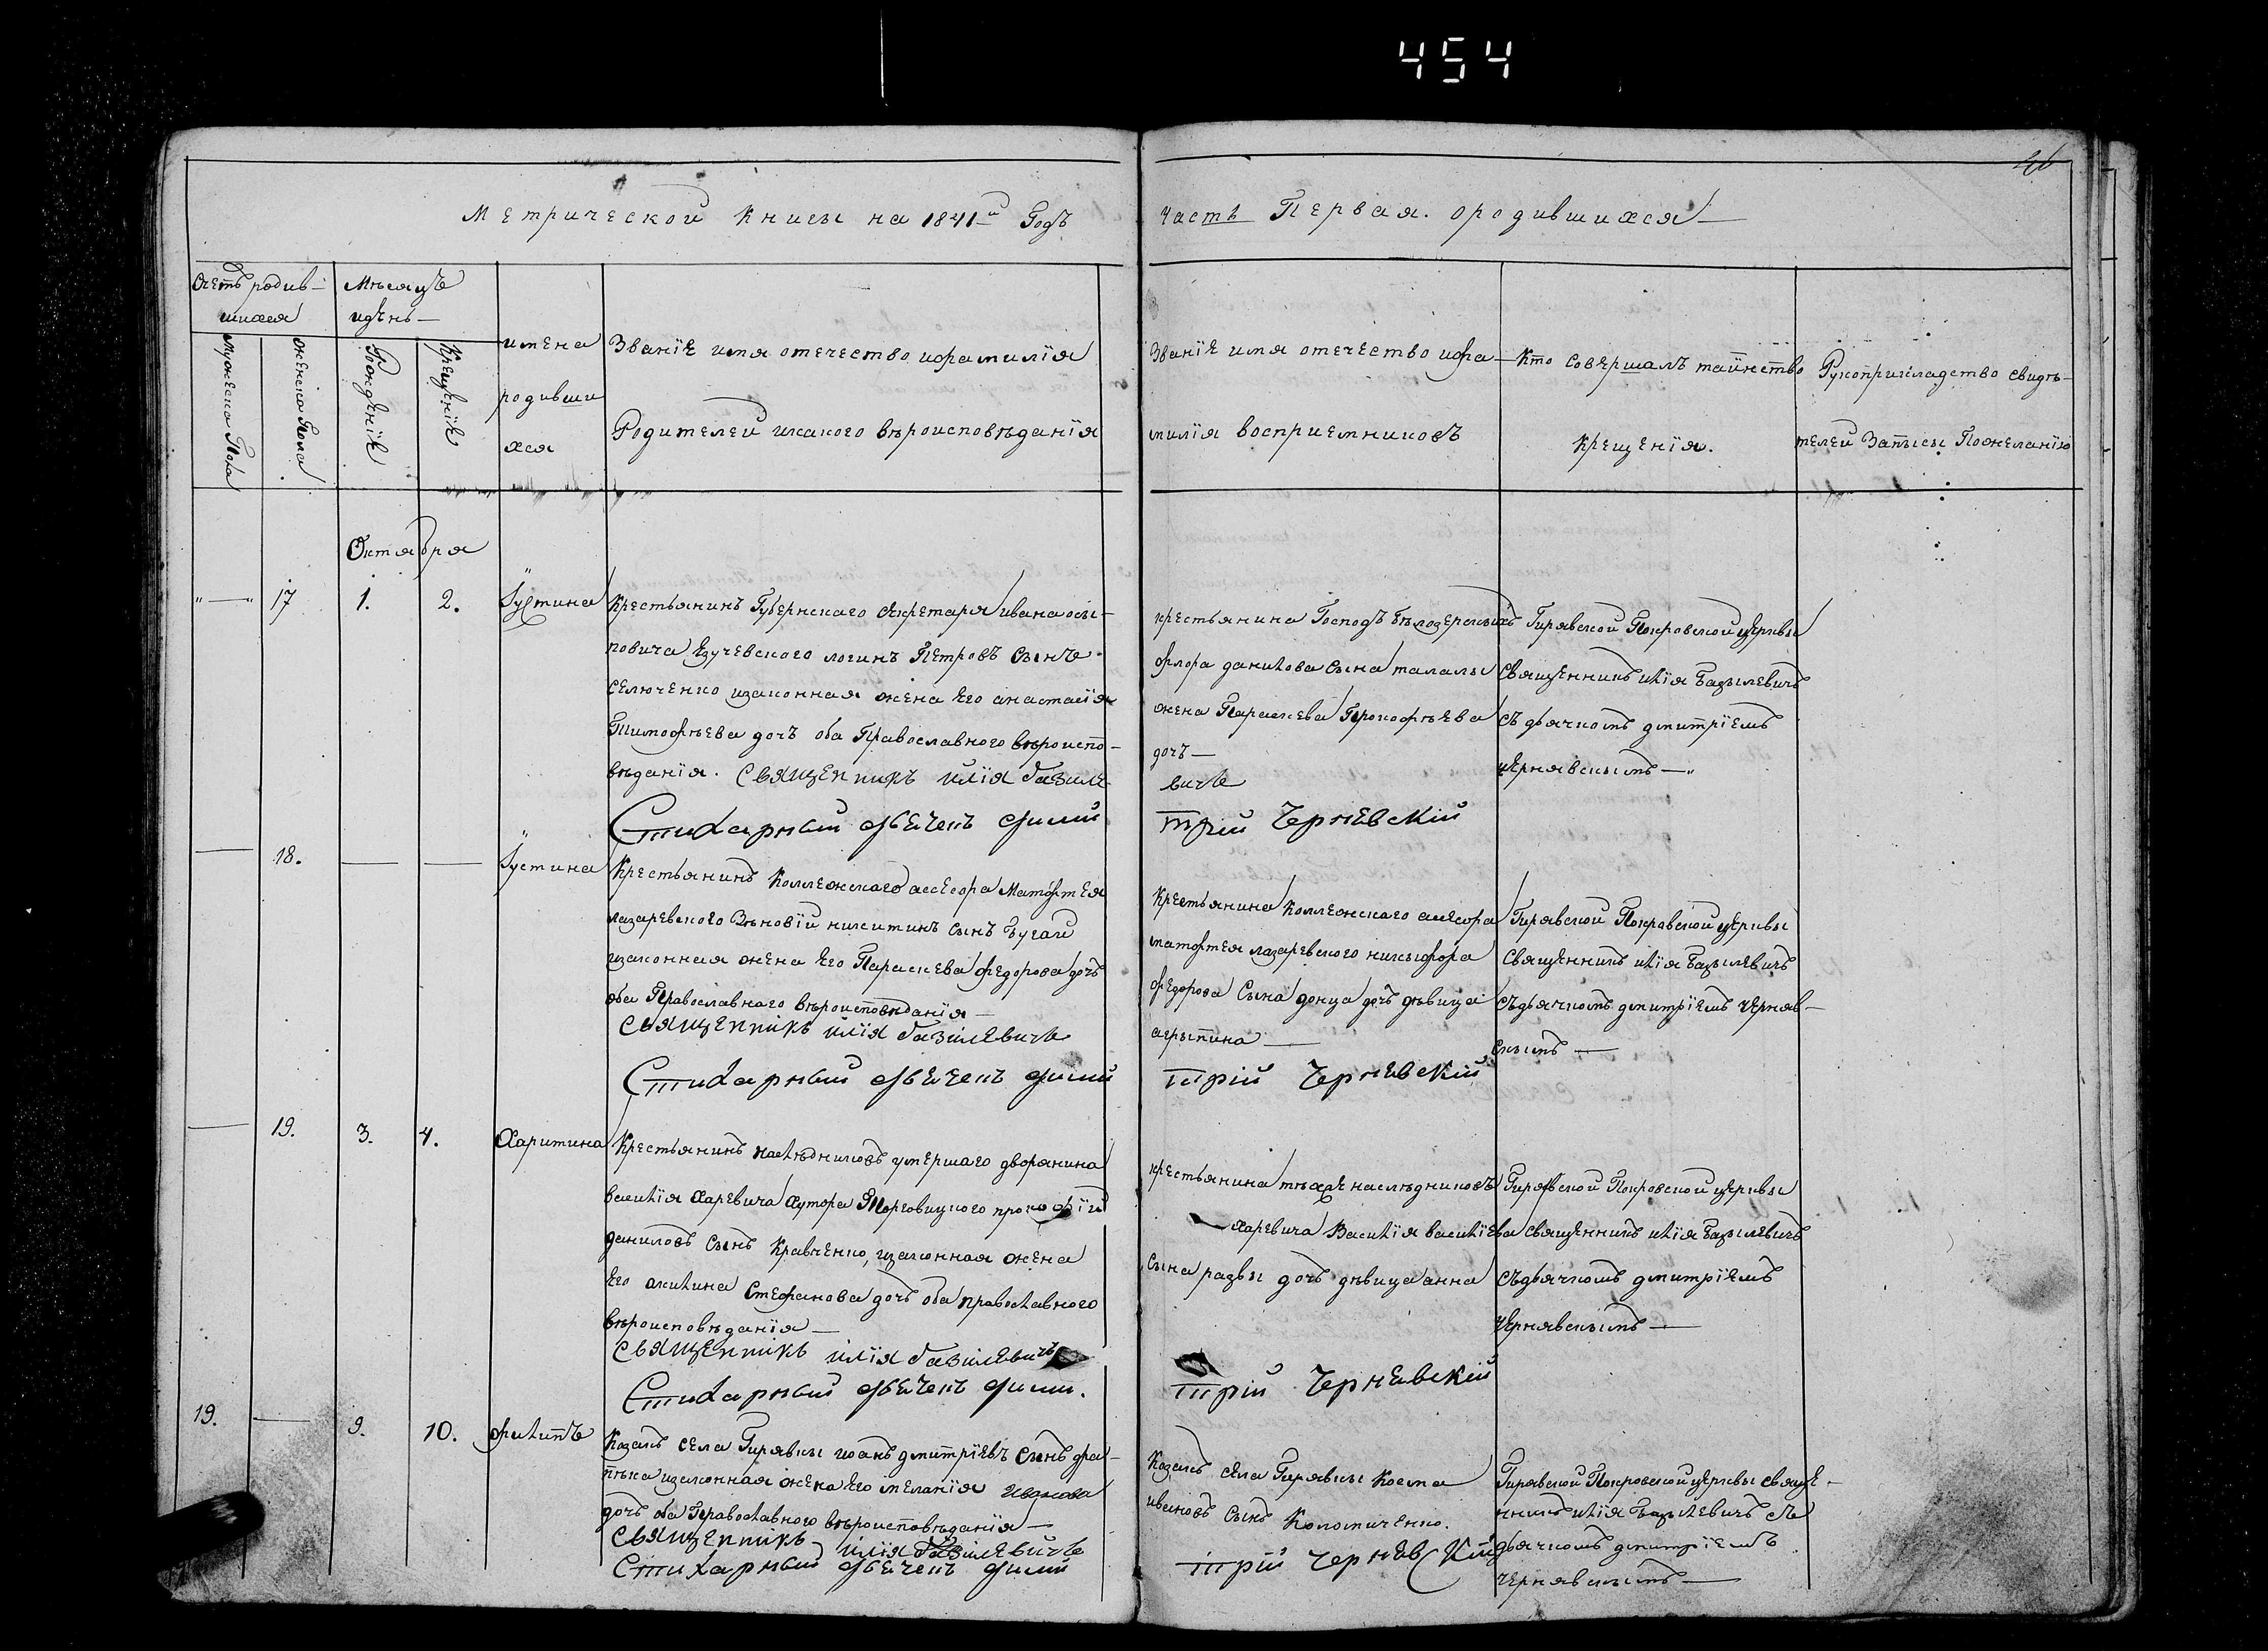 454
26
Метрической Книги на 1841й Годъ
часть Первая. ородившихся
Счетъ родив-
шихся
Мѣсяцъ
идень
Мужеска Пола
женска Пола
Рожденїе
Крещенїе
имена
родивши
хся
Званїе имя отечество ифамилїя
Родителей икакого вѣроисповѣданїя
Званїе имя отечество ифа-
милїя восприемниковъ
Кто совершалъ таинство
Крещенїя.
Рукоприкладство свидѣ-
телей Записы Пожеланїю
Октября
17 1. 2. Іустина
Крестьянинъ Губернскаго секретаря ивана оси-
повича логинъ Петровъ сынъ
селюченко изаконная жена его анастасїя
Тимофѣева дочъ оба Православного вѣроиспо-
вѣданїя. Священникъ илїя базиле
вичъ
Стихарный дьячекъ дими
трій Чернѣвскій
крестьянина Господъ Бѣлозерскихъ
флора данилова сына талалы
жена Параскева Прокофѣева
дочъ
Гирявской Покровской церквы
священникъ илїя Базылевичъ
съ дьячкомъ дмитрїемъ
чернявскимъ
18. Іустина
Крестьянинъ Коллежскаго ассесора Матфтея
лазаревского Зѣновїй никитинъ сынъ Бугай
изаконная жена его Параскева федорова дочъ
оба Православнаго вѣроисповѣданїя
Священникъ илїя базилевичъ
Стихарный дьячекъ дими
трій Чернѣвскій
Крестьянина Коллежскаго ассесора
матфтея лазаревского никыфора
федорова сына донца дочъ дѣвица
агрыпина
Гирявской Покровской церквы
священникъ илїя Базылевичъ
съдьячкомъ дмитрїемъ черняв-
скимъ
19. 3. 4. Харитина
Крестьянинъ наслѣдниковъ умершаго дворянина
василїя Харевича Хутора Торговицкого прокофїй
даниловъ сынъ Кравченко, изаконная жена
его акилина Стефанова дочъ оба православного
вѣроисповѣданїя
Священникъ илїя базилевичъ
Стихарный дьячекъ дими.
трій Чернѣвскій
крестьянина тѣхже наслѣдниковъ
Харевича Василїя василїева
сына развы дочъ дѣвица анна
Гирявской Покровской церквы
священникъ илїя Базылевичъ
съдьячкомъ дмитрїемъ
чернявскимъ
19. 9. 10. филипъ
Козакъ села Гирявки иоанъ дмитрїевъ сынъ
изаконная жена его меланїя иванова
дочъ оба Православного вѣроисповѣданїя
Священникъ илїя базилевичъ
Стихарный дьячекъ дими
трій Чернѣвскій
Козакъ села Гирявки Косма
ивановъ сынъ Коломиченко.
Гирявской Покровской церквы свяще-
нникъ илїя Базылевичъ съ
дьячкомъ дмитрїемъ
чернявскимъ